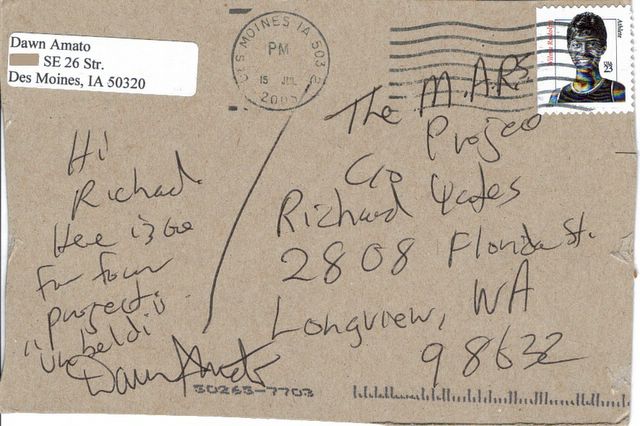 Dawn Amato
SE 26 Str.
Des Moines, IA 50320
DES MOINES IA 503
PM
15 JUL
2005
Wilma Rudolph
Athlete
USA
23
Hi
Richard.
Here is one
for your
project.
Dawn Amato
The M.A.R.S
Project
C/o
Richard Yates
2808 Florida St.
Longview, WA
98632
50265-7703